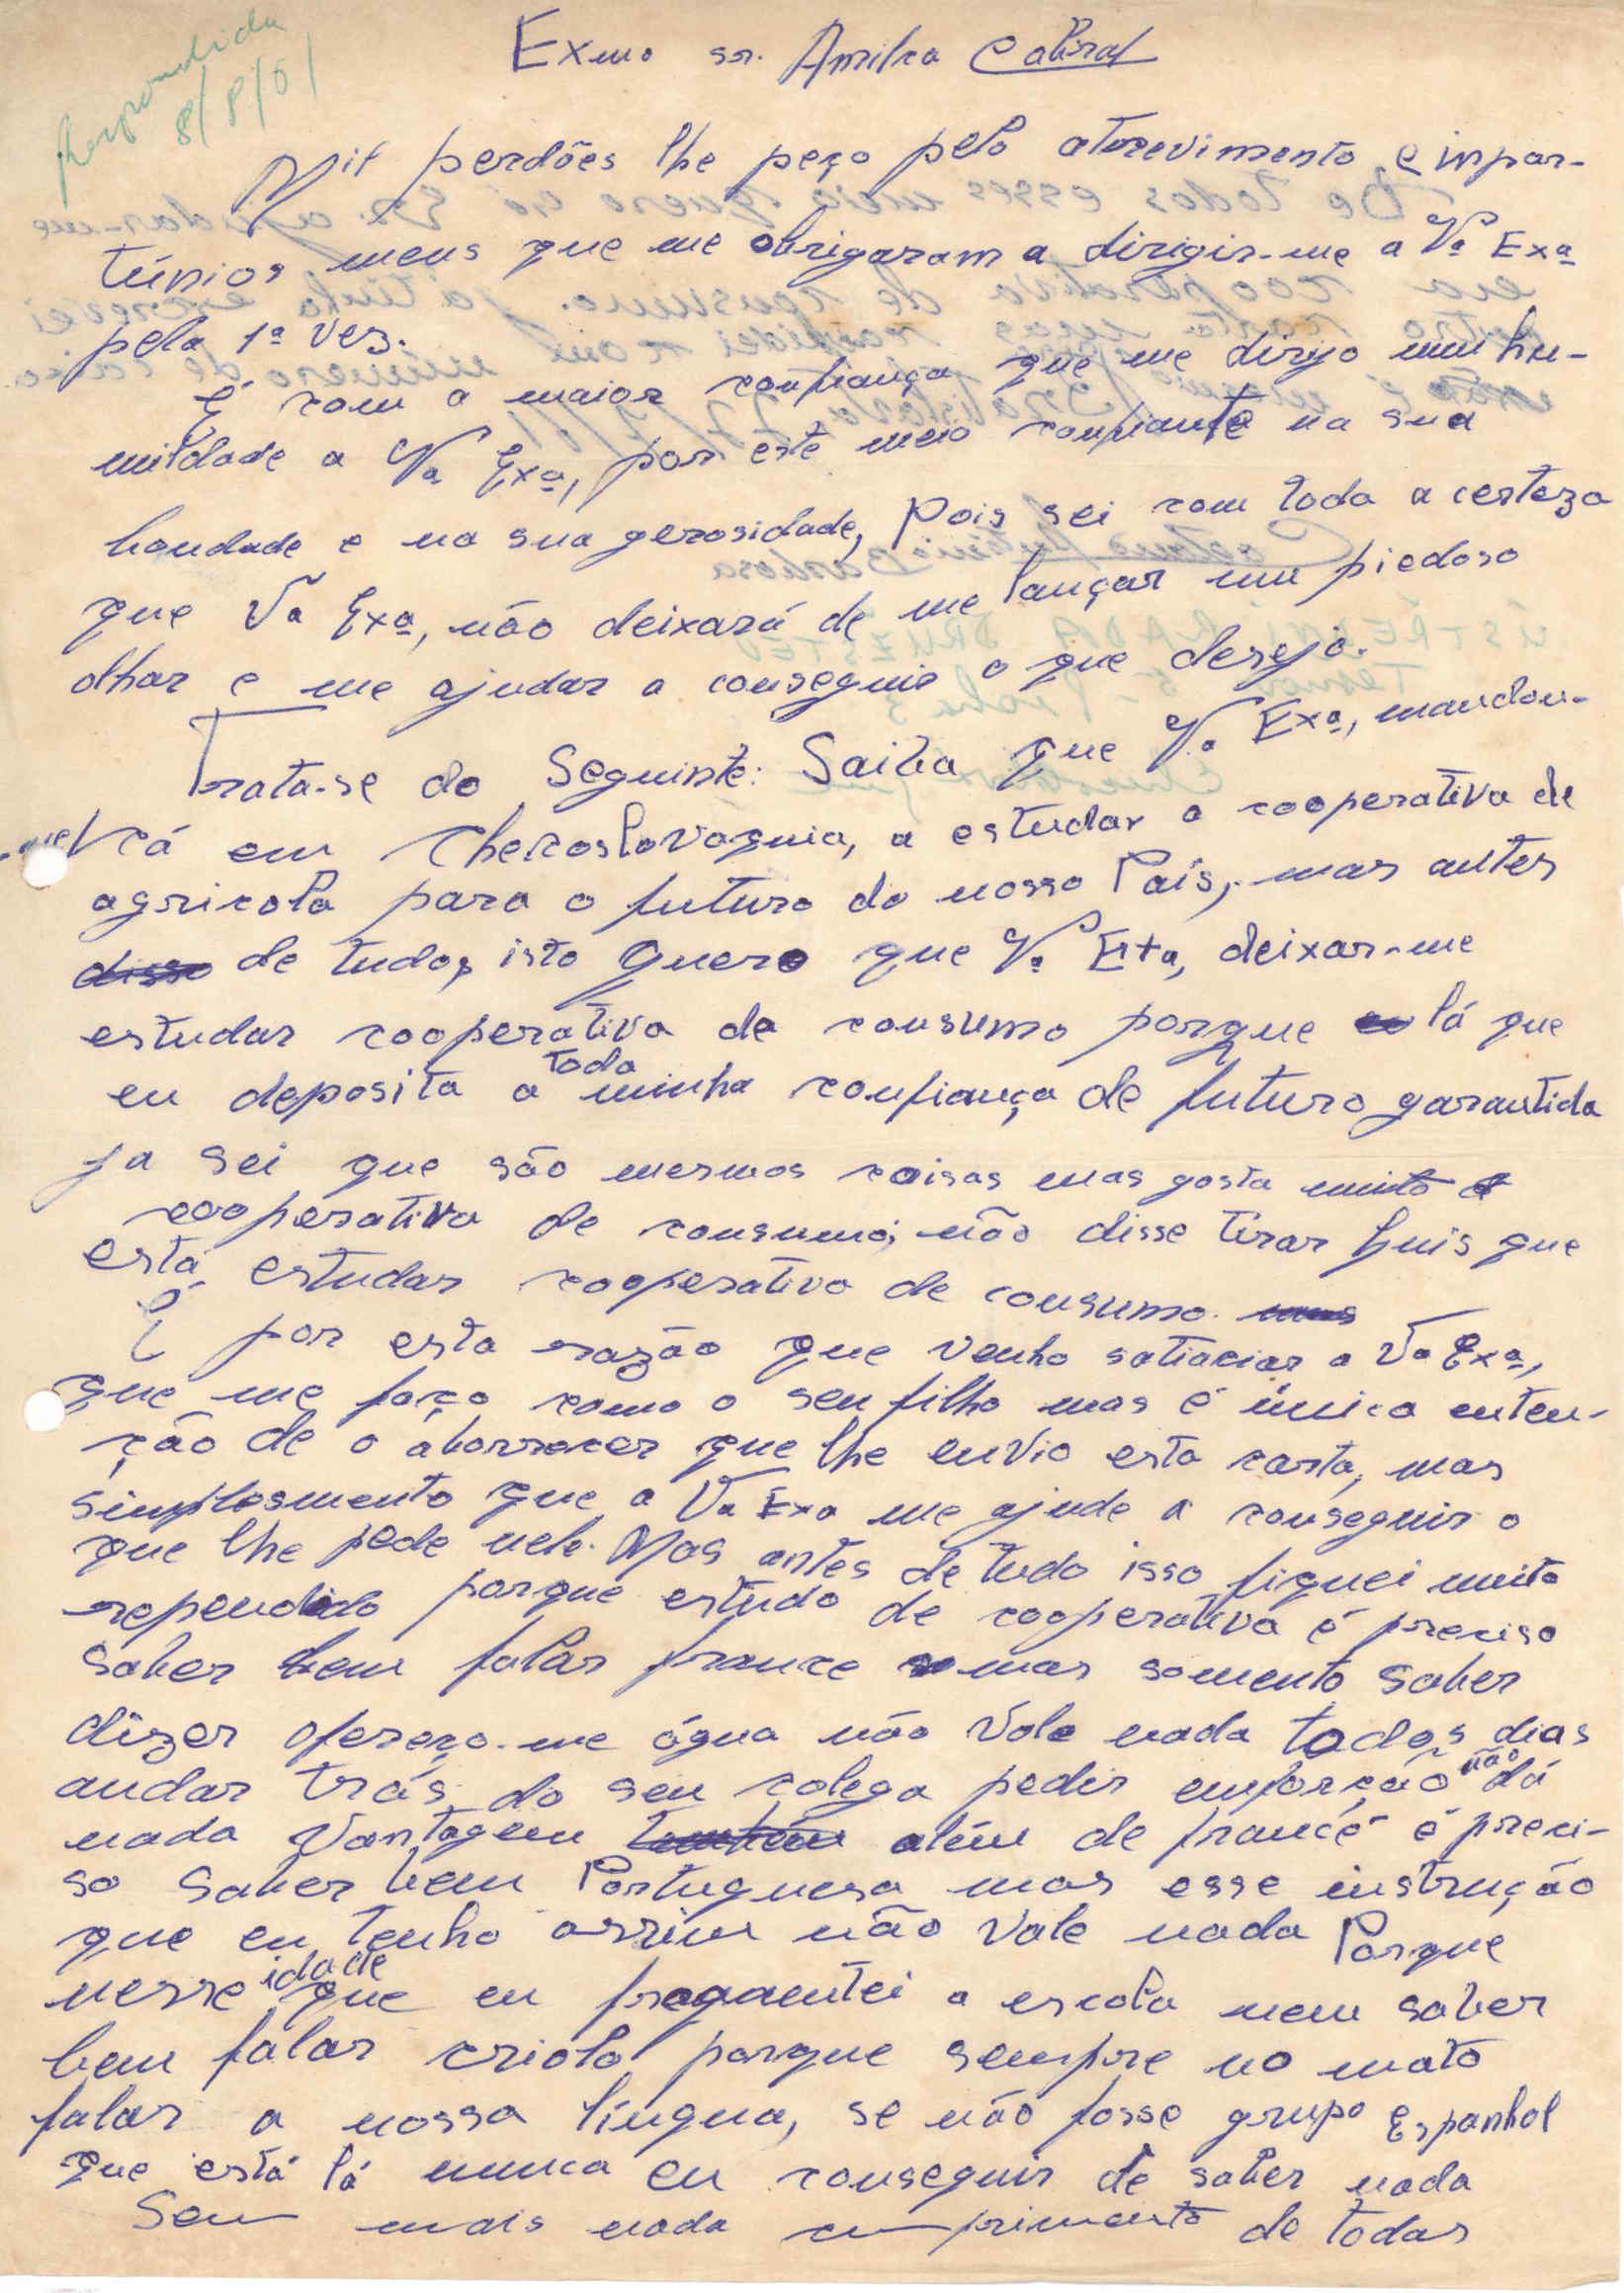 Respondida
8/8/61
Exmo sr. Amilca Cabral
Mil perdões lhe peço pelo atrevimento e impor-
túnios meus que me obrigaram a dirigir-me a Vª Exª
pela 1ª vez.
É com a maior confiança que me dirijo num hu-
mildade a Vª Exª, por este meio confiante na sua
bondade e na sua gerosidade, Pois sei com toda a certeza
que Vª Exª, não deixará de me lançar um piedoso
olhar e me ajudar a conseguir o que desejo.
Trata-se do Seguinte: Saiba que Vª Exª, mandou-
-me cá em Checoslovaquia, a estudar a cooperativa de
agricola para o futuro do nosso País, mas antes
disso de tudo, isto Quero que Vª Exª, deixar-me
estudar cooperativa de consumo porque lá que
eu deposita a toda minha confiança de futuro garantida
ja sei que são mesmos coisas mas gosta muito
cooperativa de consumo; não disse tirar Luis que
está estudar cooperativa de consumo.
É por esta razão que venho satiaciar a Vª Exª,
que me faço como o seu filho mas é única enten-
ção de o aborrecer que lhe envio esta carta, mas
simplosmento que a Vª Exa me ajude a conseguir o
que lhe pede nele. Mas antes de tudo isso fiquei muito
rependido porque estudo de cooperativa é preciso
saber bem falar france mas somento saber
dizer ofereço-me água não vale nada todos dias
andar trás do seu colega pedir enforção não dá
nada Vantagem além de francé é preci-
so saber bem Portuguesa mas esse instrução
que eu tenho assim não vale nada Porque
nesse idade que eu freqantei a escola nem saber
bem falar criolo porque sempre no mato
falar a nossa língua, se não fosse grupo Espanhol
que está lá nunca eu conseguir de saber nada
Sem mais nada cumprimento de todas